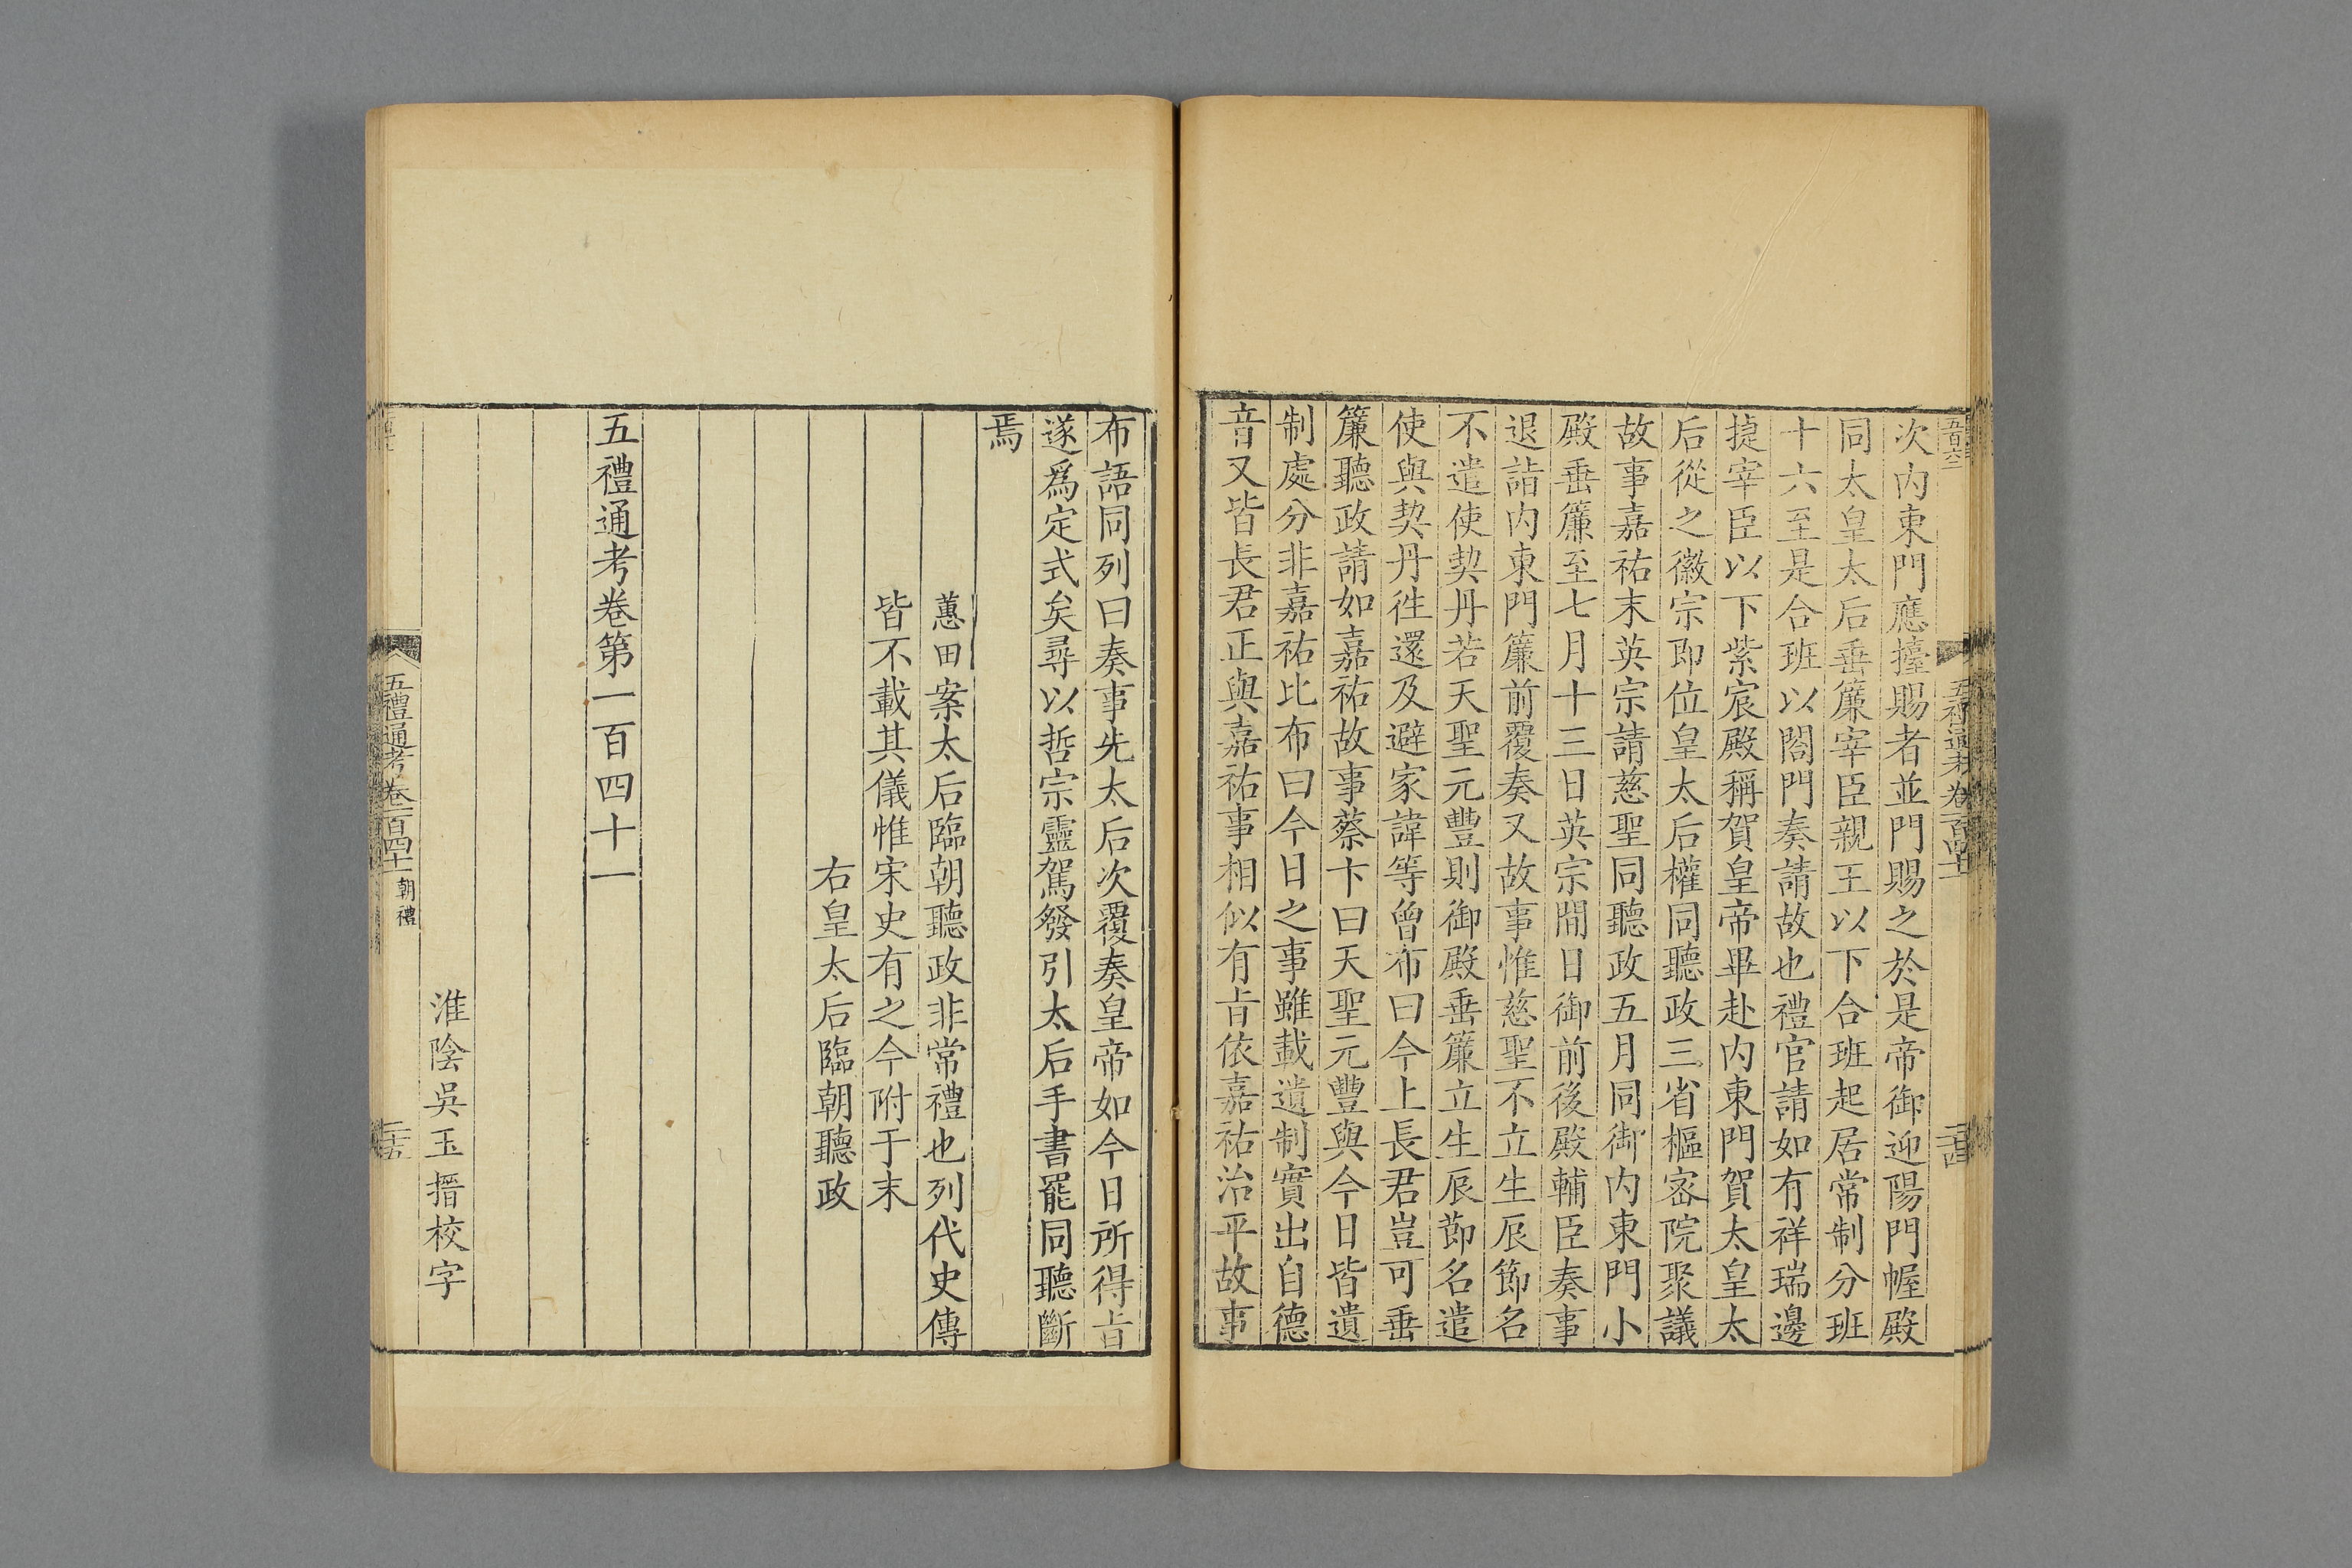 次內東門應擡賜者並門賜之於是帝御迎陽門幄殿
同太皇太后垂簾宰臣親王以下合班起居常制分班
十六至是合班以閤門奏請故也禮官請如有祥瑞邊
捷宰臣以下紫宸殿稱賀皇帝畢赴內東門賀太皇太
后從之徽宗即位皇太后權同聽政三省樞密院聚議
故事嘉祐末英宗請慈聖同聽政五月同御內東門小
殿垂簾至七月十三日英宗間日御前後殿輔臣奏事
退詣內東門簾前覆奏又故事惟慈聖不立生辰節名
不遣使契丹若天聖元豐則御殿垂簾立生辰節名遣
使與契丹徃還及避家諱等曾布曰今上長君豈可垂
簾聽政請如嘉祐故事蔡卞曰天聖元豐與今日皆遺
制處分非嘉祐比布曰今日之事雖載遺制實出自德
音又皆長君正與嘉祐事相似有㫖依嘉祐治平故事
布語同列曰奏事先太后次覆奏皇帝如今日所得㫖
遂爲定式矣尋以哲宗靈駕發引太后手書罷同聽斷
焉
蕙田案太后臨朝聽政非常禮也列代史傳
皆不載其儀惟宋史有之今附于末
右皇太后臨朝聽政
五禮通考卷第一百四十一
淮陰吳玉搢校字
五禮通考卷一百四十一 朝禮
二十五